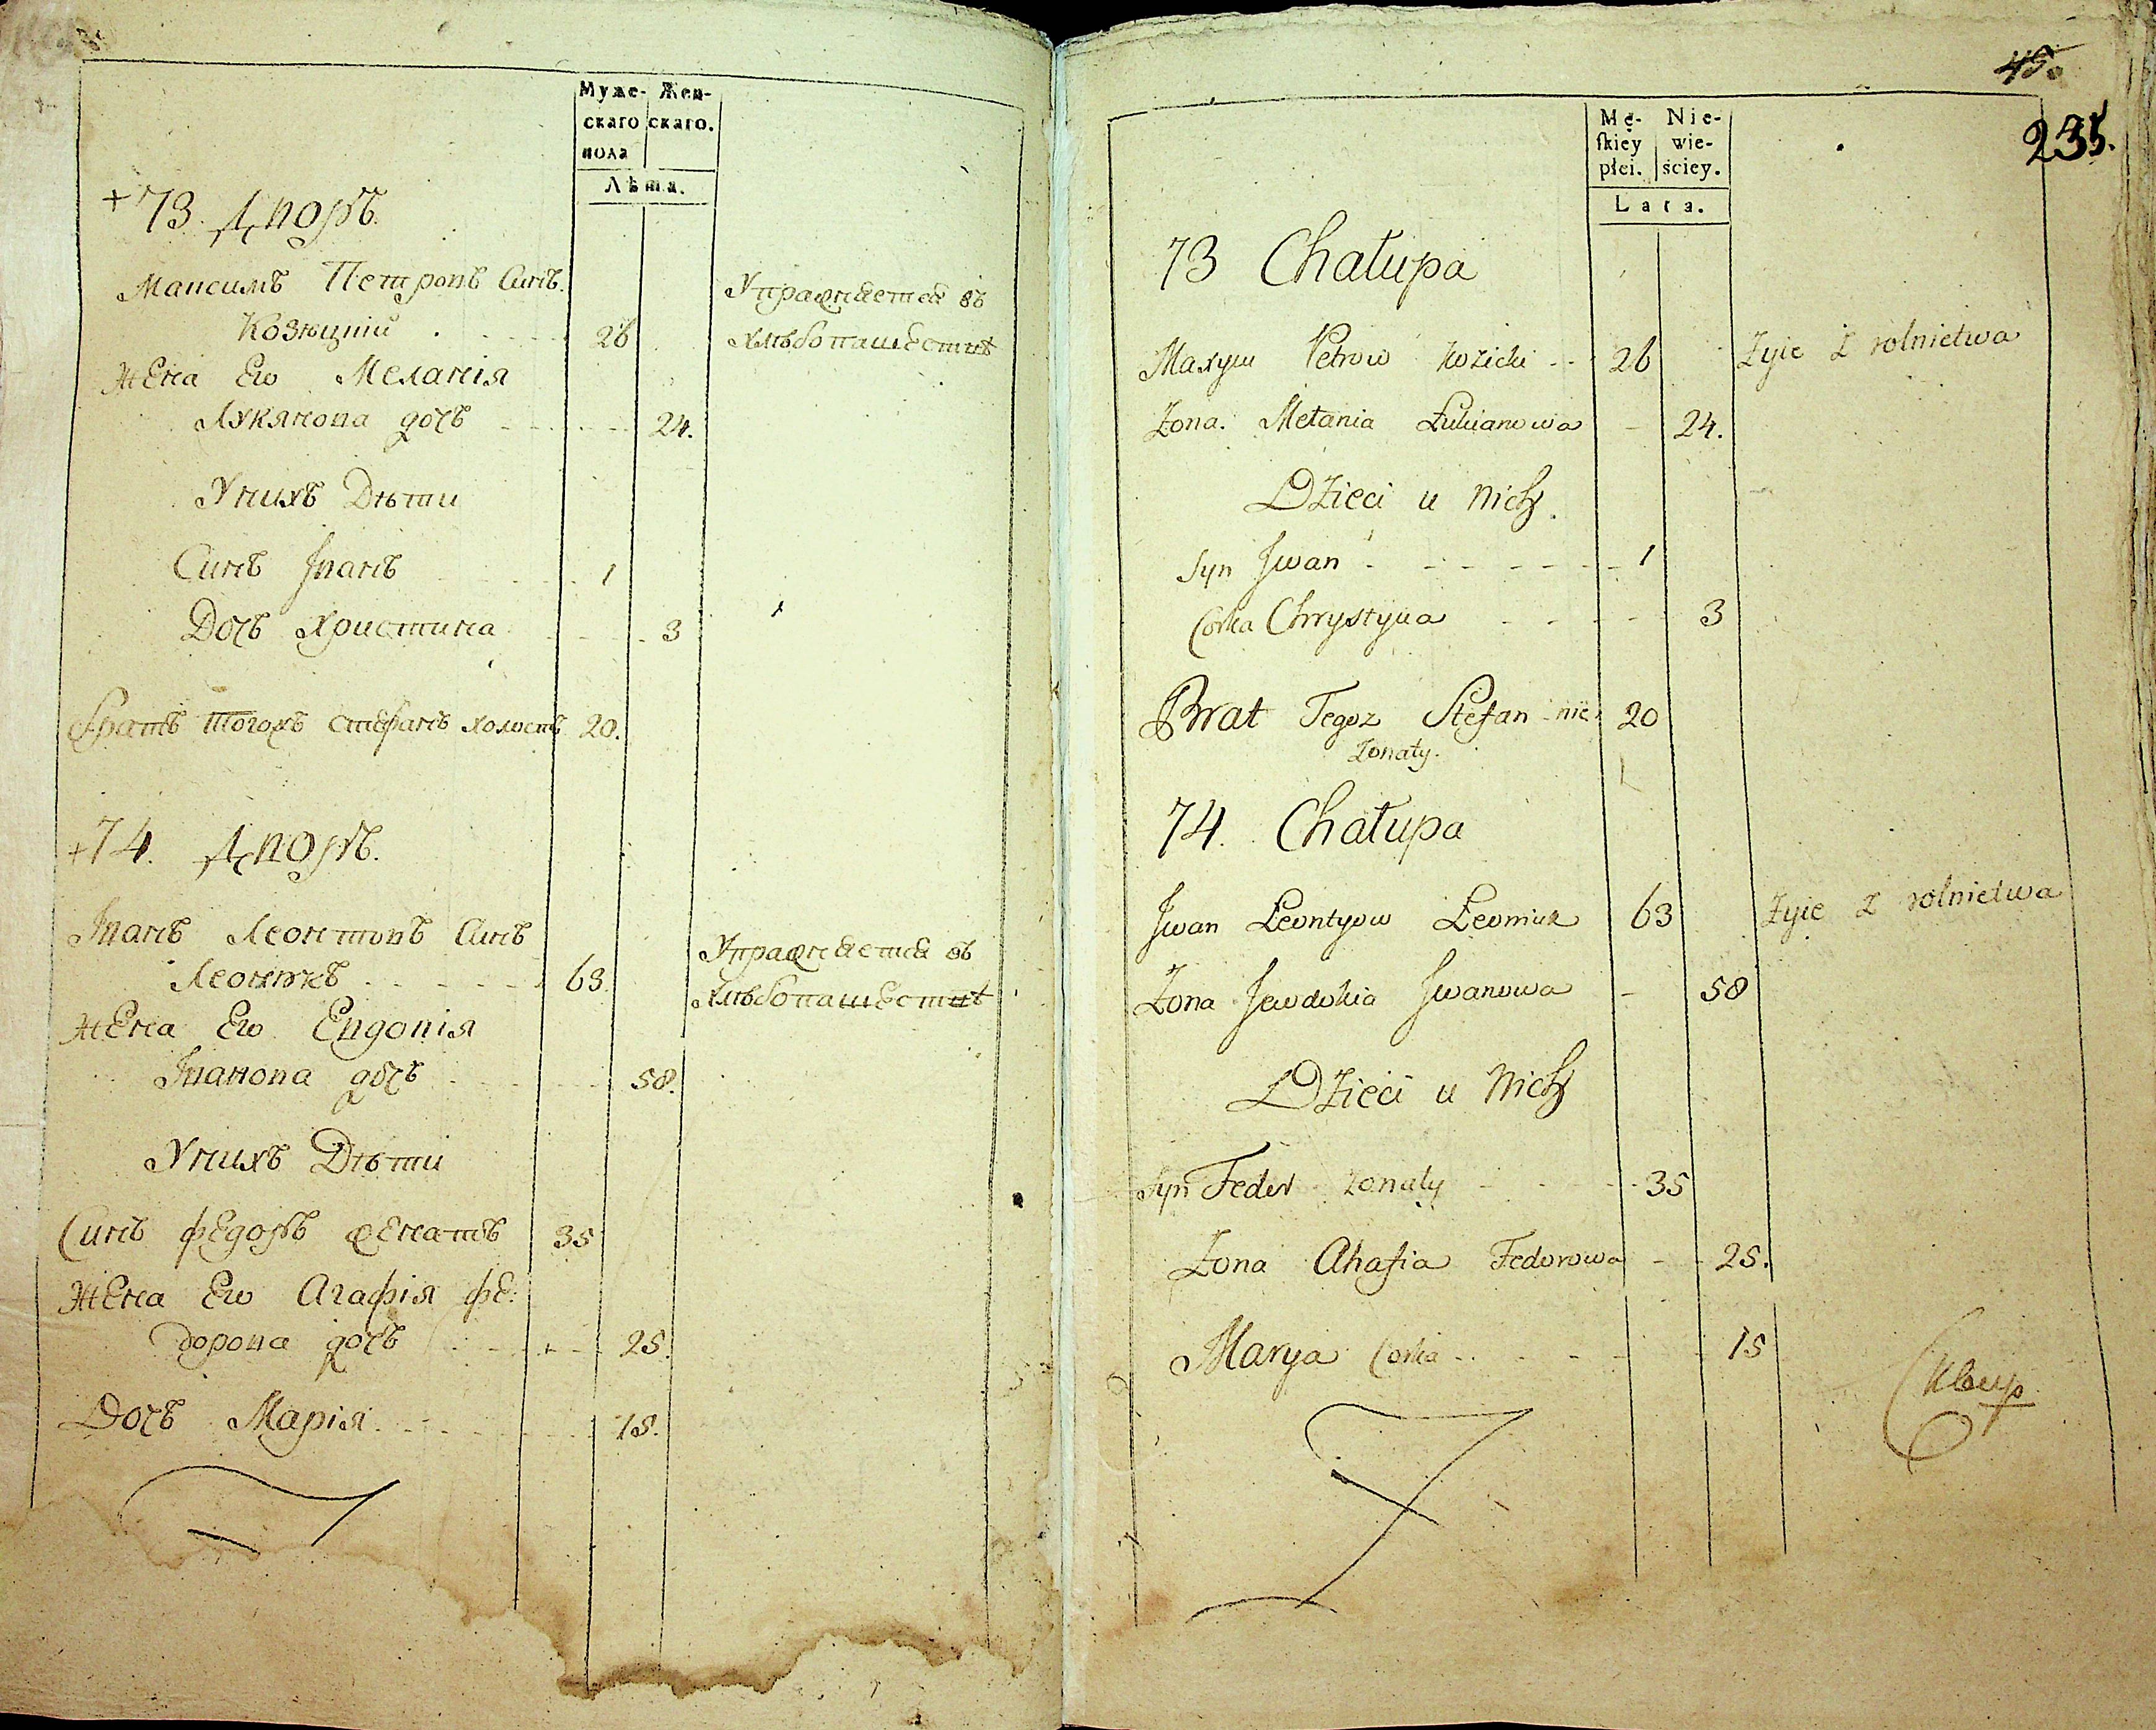 Муже- Жен-
скаго скаго.
пола
Лѣта.
+ 73. Дворъ.
Максимъ Петровъ Синъ.
Козѣцкій 26
Упражняется въ
хлѣбопашествѣ
Жена Его Меланія
Лукянова дочъ 24.
У нихъ Дѣти
Синъ Іванъ 1
Дочъ Христина 3
Братъ тогожъ Стефанъ холостъ 20.
+ 74. Дворъ.
Іванъ Леонтовъ Синъ
Леонюкъ 63.
Упражняется въ
хлѣбопашествѣ
Жена Его Евдокія
Іванова дочъ 58.
У нихъ Дѣти
Синъ Федоръ женатъ 35
Жена Его Агафія Фе:
дорова дочъ 25.
Дочъ Марія 15.
45.
235.
Mę- Nie-
skiey wie-
płci. ściey.
Lata.
73 Chałupa
Maxym Petrow Kozicki 26 Żyie z rolnictwa
Żona Mełania Łukianowa 24.
Dzieci u nich
Syn Jwan 1
Corka Chrystyna 3
Brat Tegoz Stefan nie 20
żonaty.
74. Chałupa
Jwan Leontyow Leoniuk 63 Żyie z rolnictwa
Żona Jewdokia Jwanowa 58
Dzieci u nich
Syn Fedor żonaty 35
Żona Ahafia Fedorowa 25.
Marya Corka 15